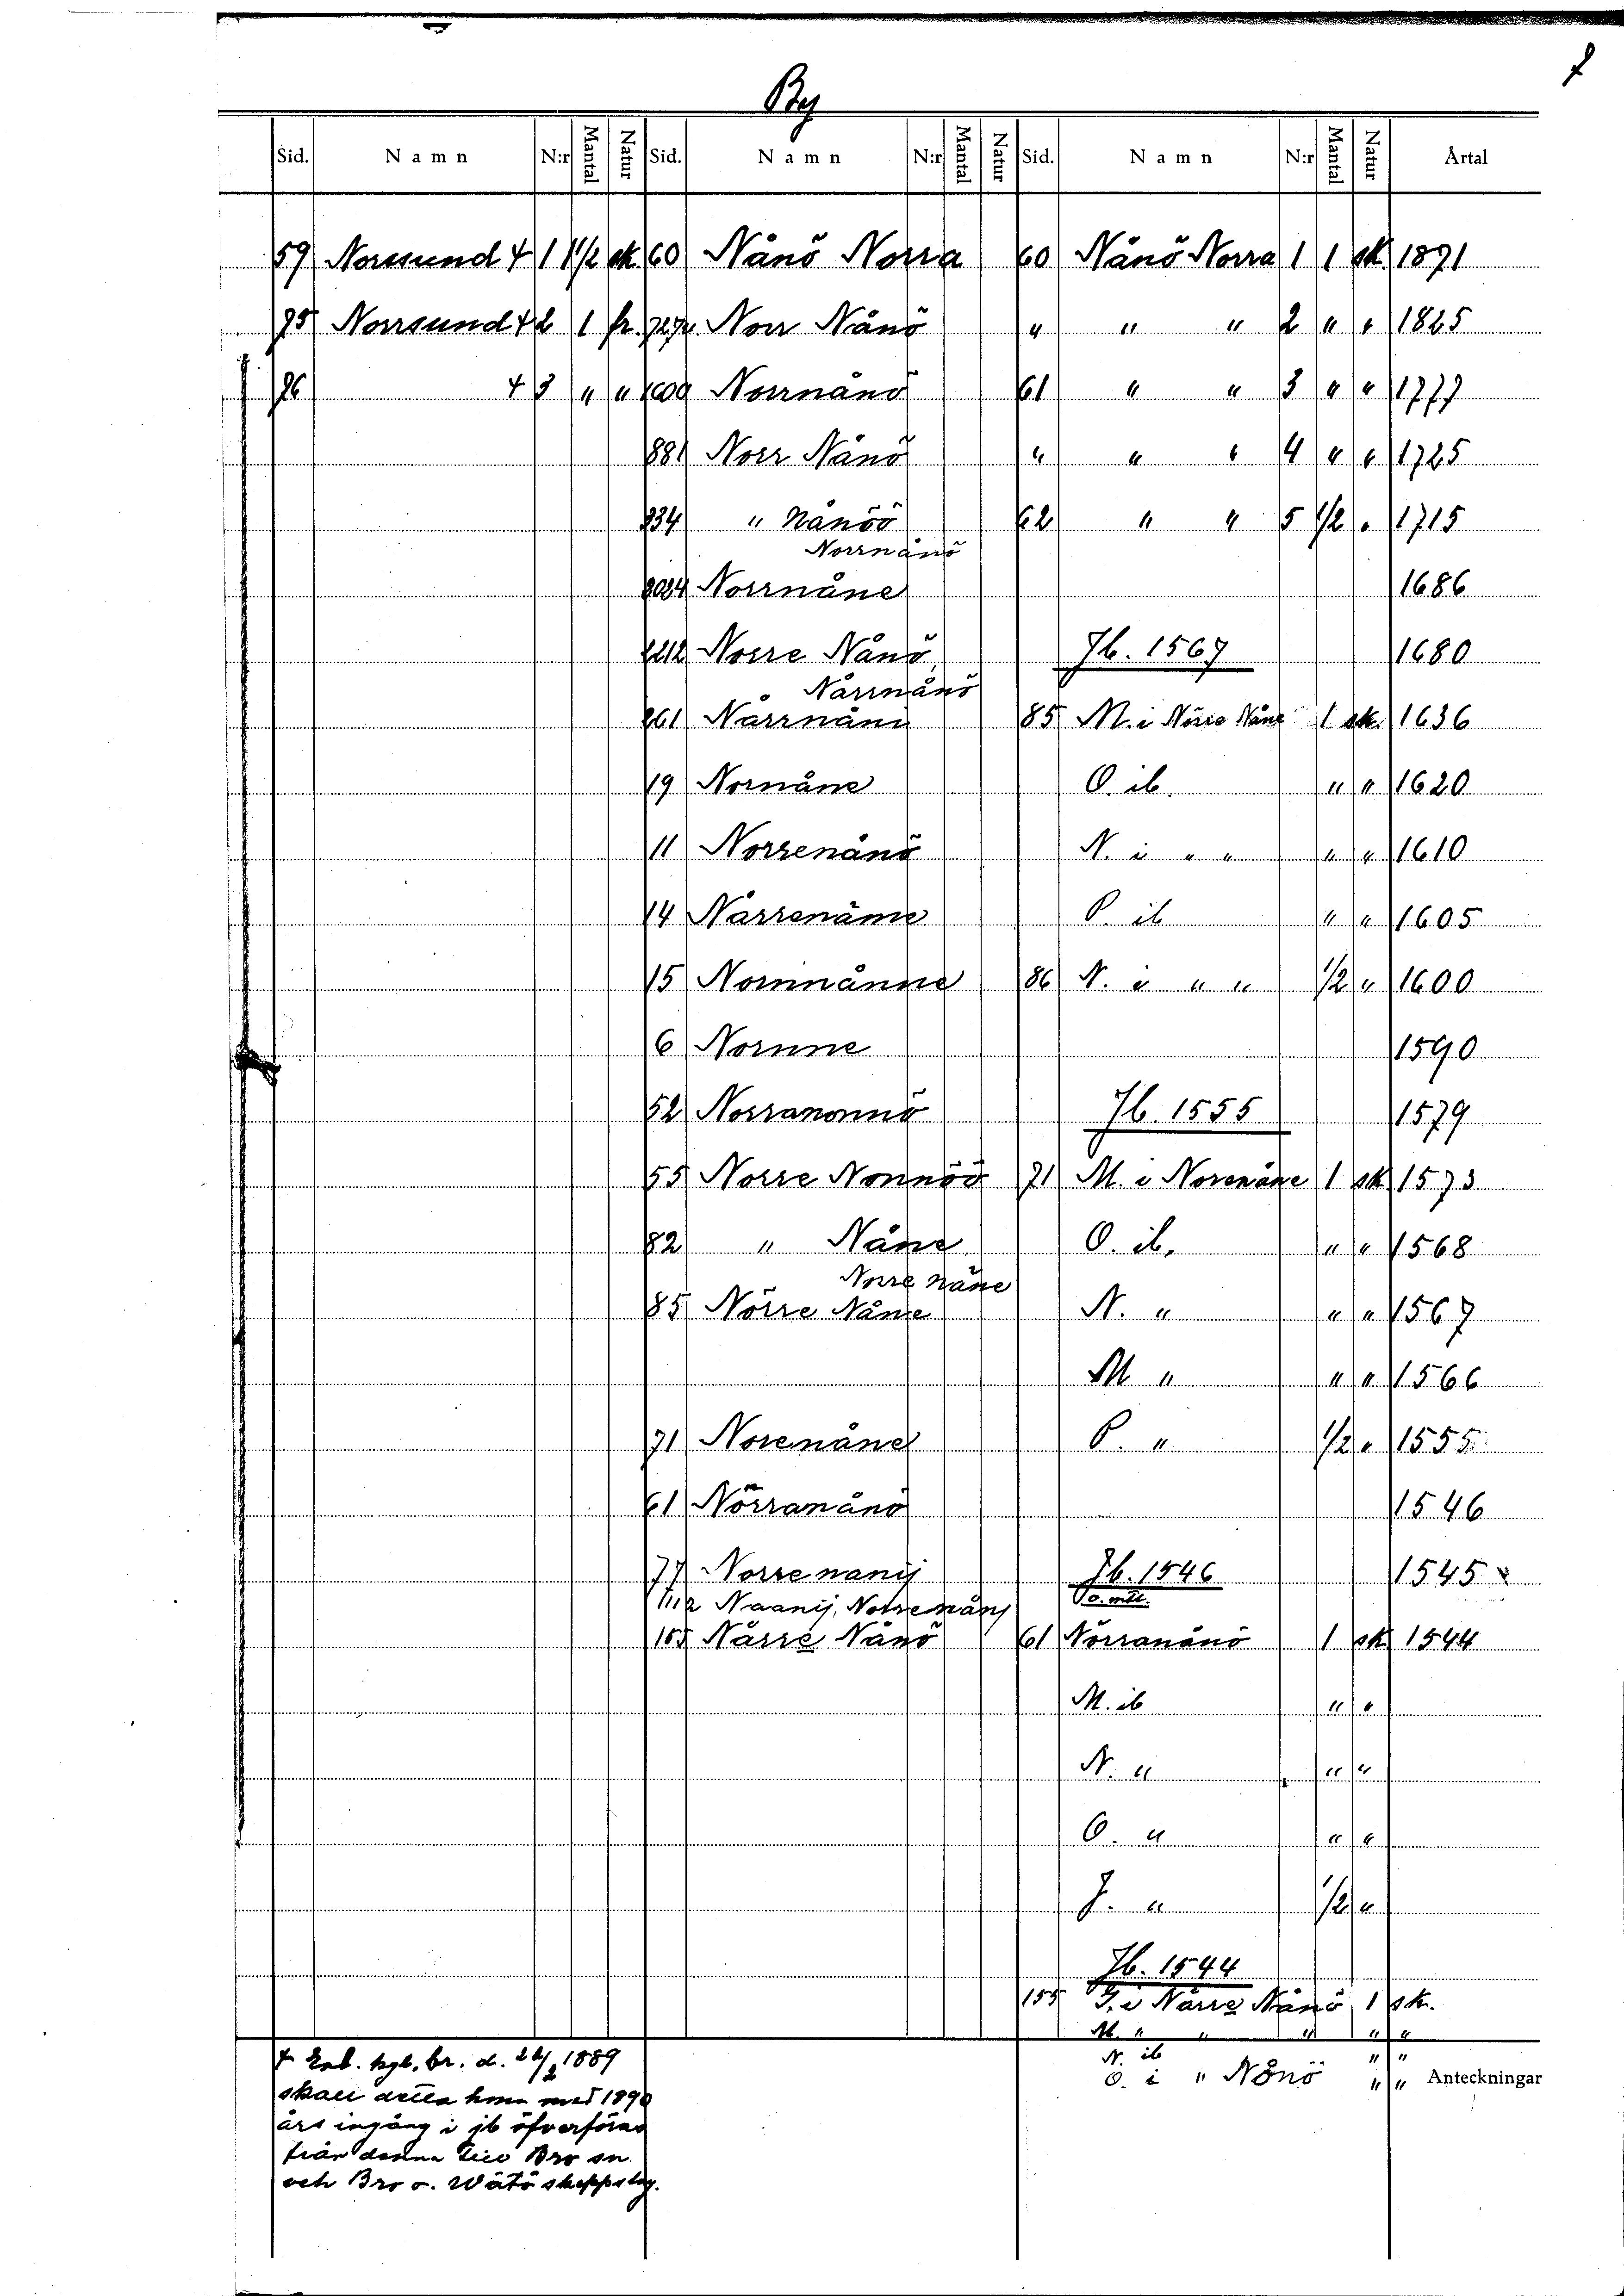 By
Sid. Namn N:r Mantal Natur Sid. Namn N:r Mantal Natur Sid. Namn N:r Mantal Natur Årtal
59 Norrsund + 1 1 1/2 sk. 60 Nånö Norra 60 Nånö Norra 1 1 sk. 1891
75 Norrsund + 2 1 fr. Norr Nånö " " " 2 " " 1825
76 + 3 " " 1609 Norrnånö 61 " " 3 " " 1777
881 Norr Nånö " " " 4 " " 1725
834 " Nånöö 62 " " 5 1/2 " 1715
Norrnånö
2084 Norrnåne 1686
2212 Norre Nånö, Jb. 1567 1680
Nårrnånö
261 Nårrnånö 85 M. i Nörre Nåne 1 sk. 1636
19 Nornåne O. ib. " " 1620
11 Norrenånö N. i " " " " 1610
14 Nårrenåme P. ib " " 1605
15 Nornnånne 86 N. i " " 1/2 " 1600
6 Nornne 1590
52 Norranonnö Jb. 1555 1579
55 Norre Nonnöö 71 M. i Norenåne 1 sk 1573
82 " Nåne O. ib. " " 1568
Norre Nåne
85 Nörre Nåne N. " " " 1567
M " " " 1566
71 Norenåne P. " 1/2 " 1555
61 Nörranånö 1546
77 Norre nanij Jb. 1546 1545
112 Naanij, Norrenånj
155 Nårre Nånö 61 Nörranånö 1 sk 1544
M. ib " "
N. " " "
O. " " "
J. " 1/2 "
Jb. 1544
155 J. i Nårre Nånö 1 sk.
M. " " " " "
N. ib " "
O. i " Nånö " " Anteckningar
+ Enl. kgl. br. d. 22/2 1889
skall detta hmn med 1890
års ingång i jb öfverföras
från denna till Bro sn
och Bro o. Wätö skeppslag.